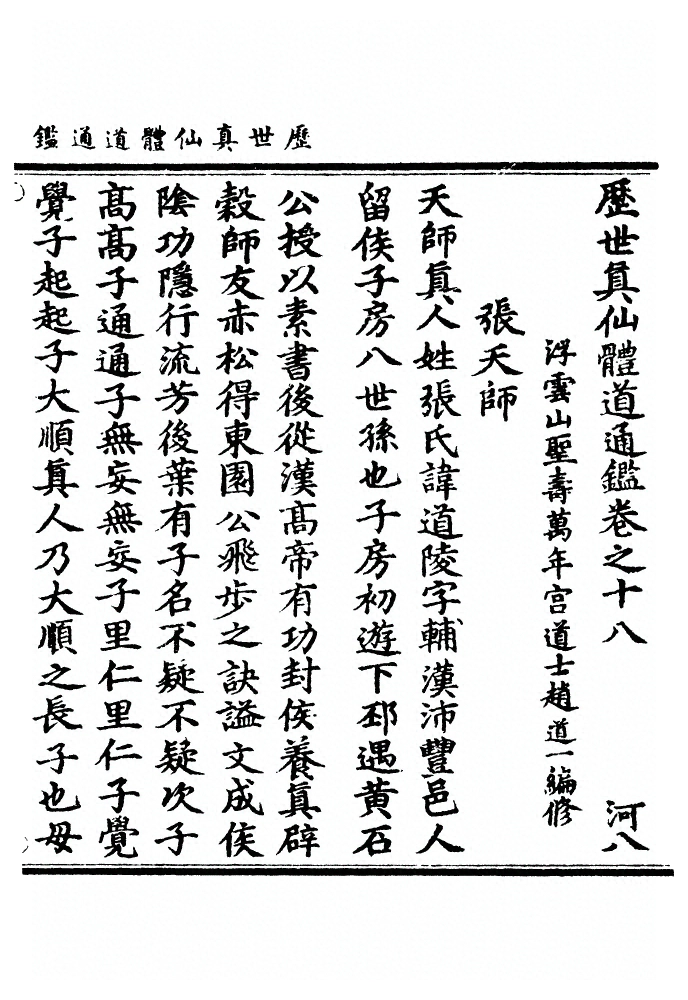 歷世真仙體道通鑑
歷世真仙體道通鑑卷之十八 河八
浮雲山聖壽萬年宮道士趙道一編修
張天師
天師真人姓張氏諱道陵字輔漢沛豐邑人
留侯子房八世孫也子房初遊下邳遇黃石
公授以素書後從漢高帝有功封侯養真辟
穀師友赤松得東園公飛步之訣謚文成侯
陰功隱行流芳後葉有子名不疑不疑次子
高高子通通子無妄無妄子里仁里仁子覺
覺子起起子大順真人乃大順之長子也母